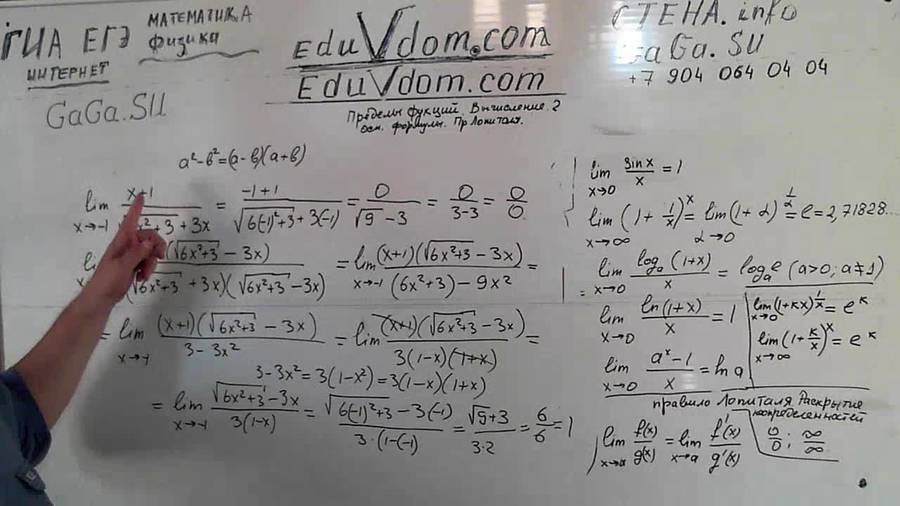 ГИА ЕГЭ МАТЕМАТИКА
физика
ИНТЕРНЕТ
GaGa.SU
EduVdom.com
EduVdom.com
Пределы фукций. Вычисление. 2
осн. формулы. Пр Лопиталя.
СТЕНА.info
GaGa.SU
+7 904 064 04 04
a²-b²=(a-b)(a+b)
lim x→-1 (x+1)/(√6x²+3 + 3x) = (-1+1)/(√6(-1)²+3 + 3(-1)) = 0/(√9 - 3) = 0/(3-3) = 0/0
(√6x²+3 - 3x)/((√6x²+3 + 3x)(√6x²+3 - 3x)) = lim x→-1 (x+1)(√6x²+3 - 3x)/((6x²+3) - 9x²) =
= lim x→-1 (x+1)(√6x²+3 - 3x)/(3-3x²) = lim x→-1 (x+1)(√6x²+3 - 3x)/(3(1-x)(1+x)) =
3-3x² = 3(1-x²) = 3(1-x)(1+x)
= lim x→-1 (√6x²+3 - 3x)/(3(1-x)) = (√6(-1)²+3 - 3(-1))/(3·(1-(-1)) = (√9+3)/(3·2) = 6/6 = 1
lim x→0 sinx/x = 1
lim x→∞ (1+1/x)^x = lim α→0 (1+α)^(1/α) = e = 2,71828...
lim x→0 logₐ(1+x)/x = logₐe (a>0; a≠1)
lim x→0 ln(1+x)/x = 1
lim x→0 (1+kx)^(1/x) = e^k
lim x→∞ (1+k/x)^x = e^k
lim x→0 (a^x-1)/x = ln a
правило Лопиталя Раскрытие
неопределенностей
lim x→a f(x)/g(x) = lim x→a f'(x)/g'(x)
0/0 ; ∞/∞